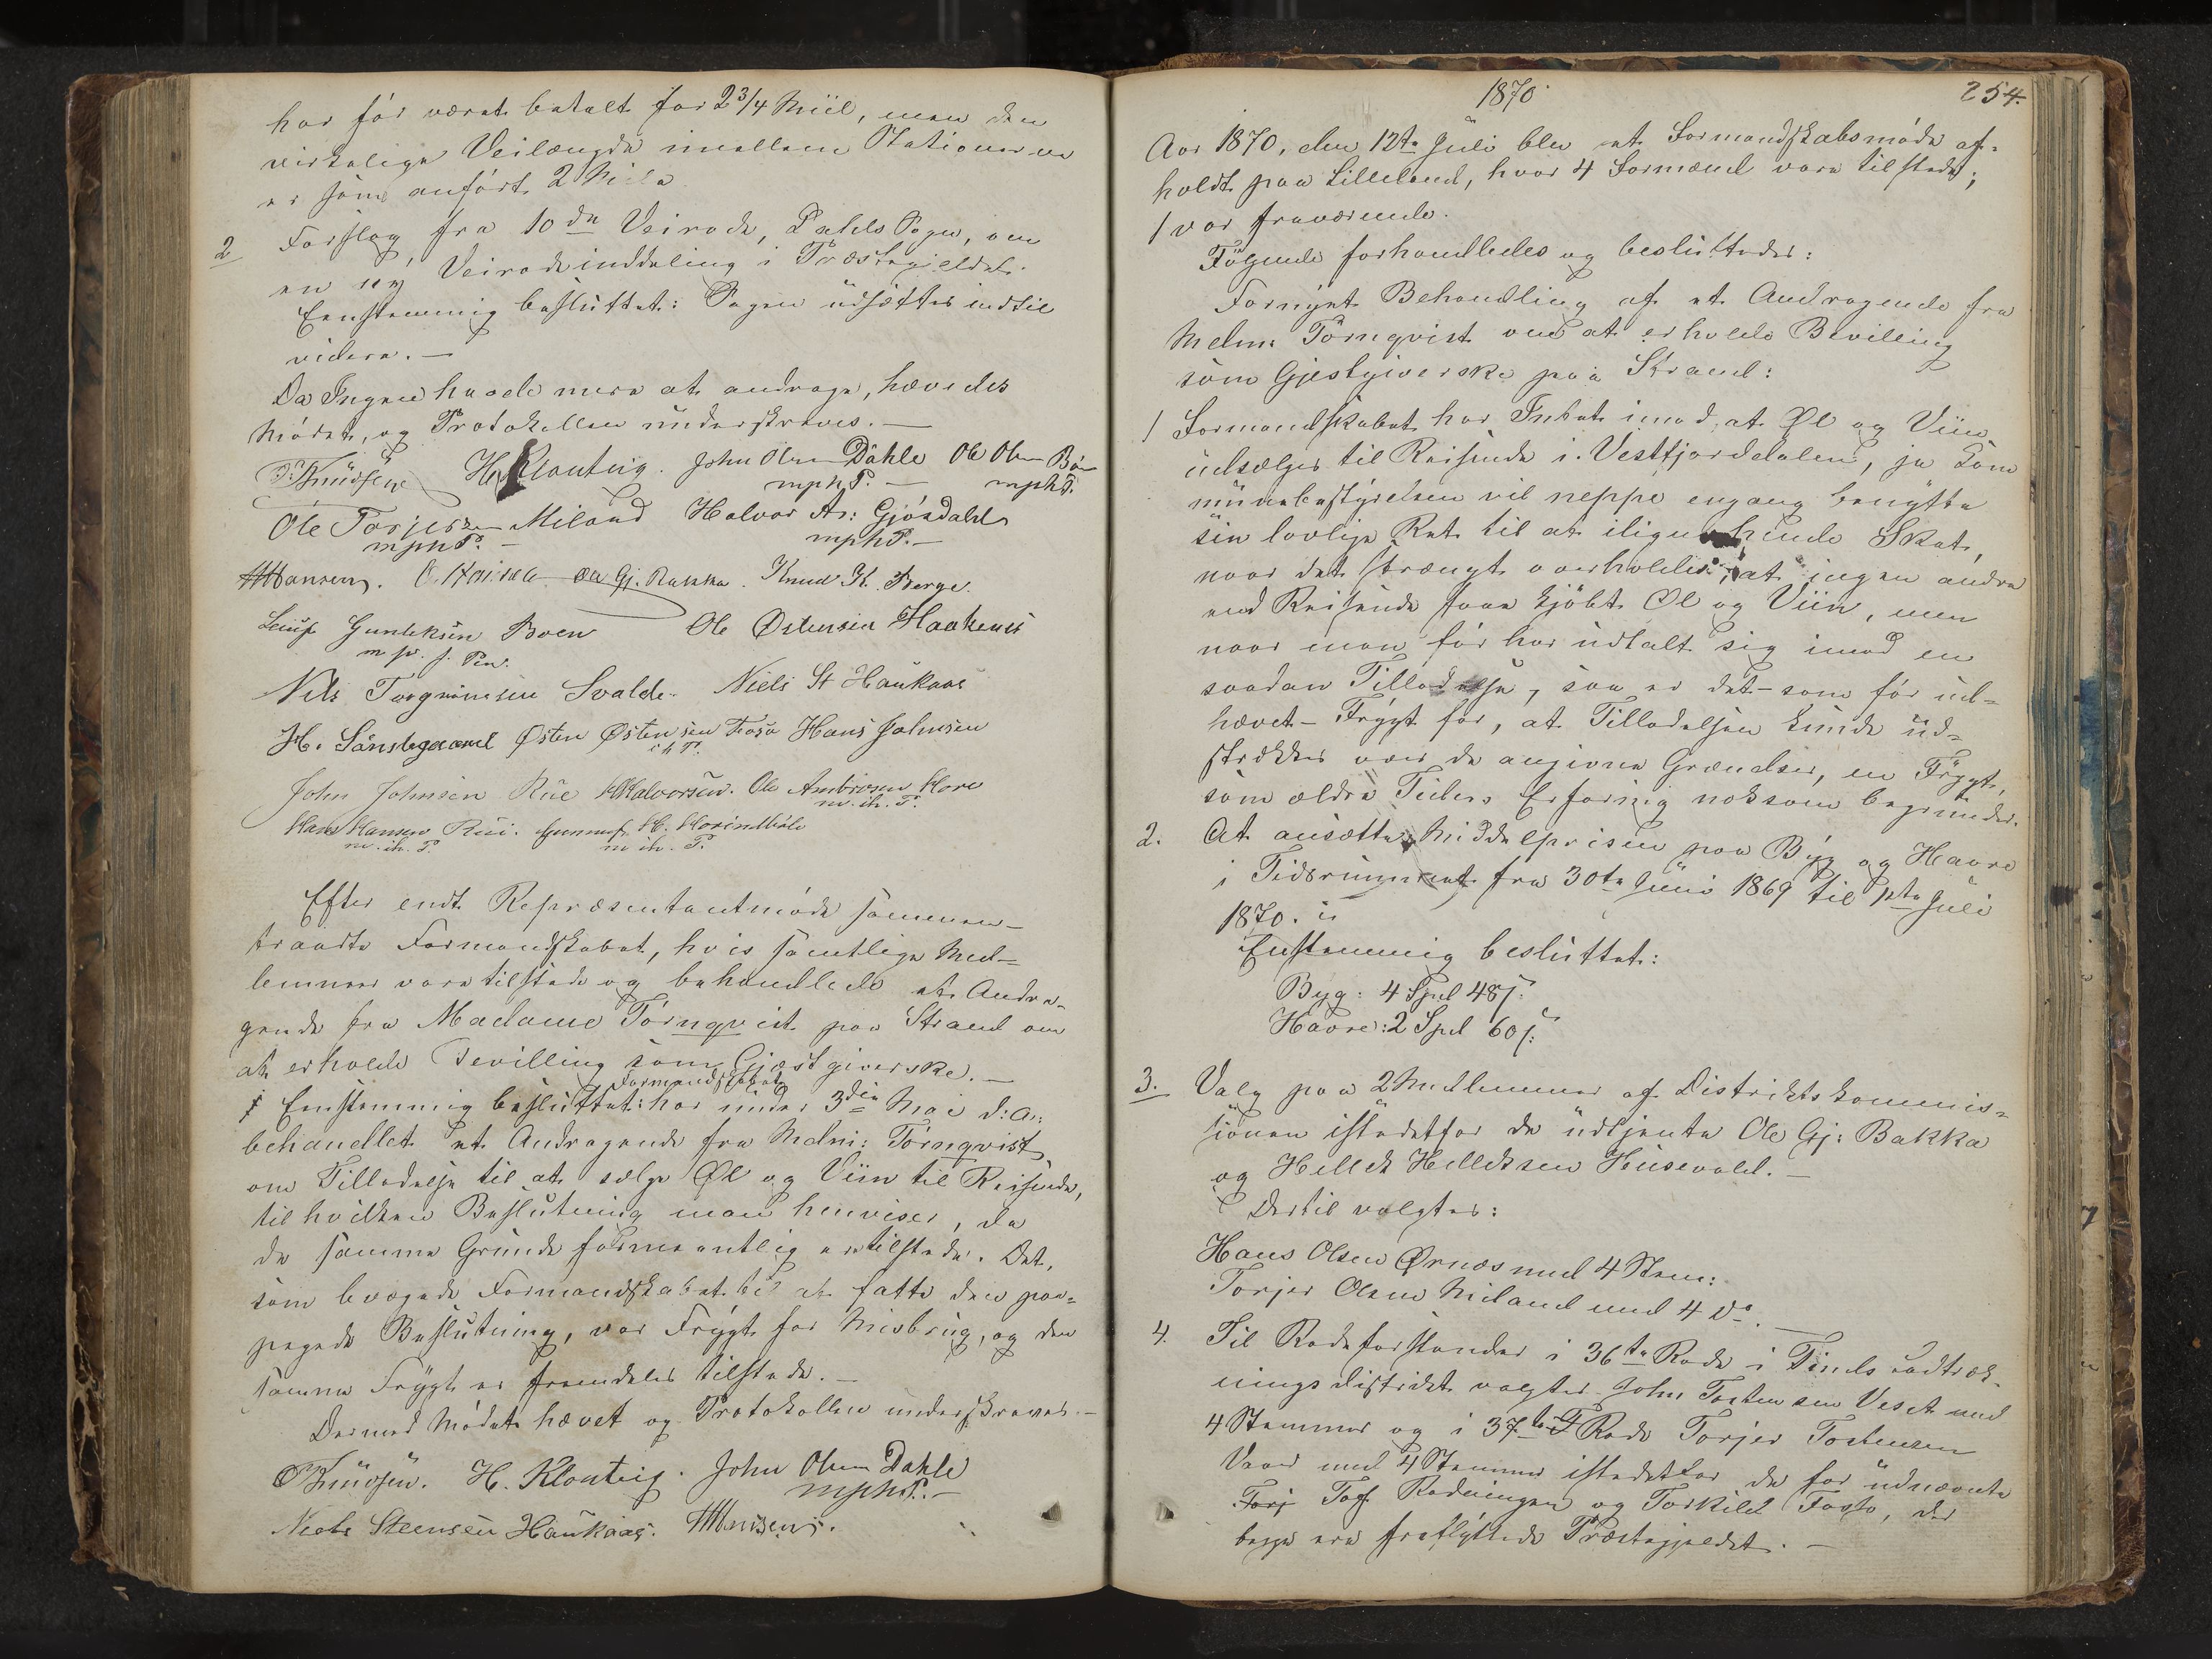 har før været betalt for 2 3/4 Miil, men den
virkelige Veilængde imellem Stationerne
er som anført 2 Mile
2 Forslag fra 10de Veirode, Dahls Sogn, om
en ny Veirodeinddeling i Præstegjeldet.
Eenstemmig besluttet: Sagen udsættes indtil
videre. —
Da Ingen havde mere at andrage, hævedes
Mødet, og Protokollen underskreves. —
Knudsen H. Kløntvig. John Olsen Dahle Ole Olsen Bøn
mphP. — mphP.
Ole Torjersen Miland Halvor As: Gjøsdahl
mphP. — mphP. —
Hansen. Ole Gj. Bakka. Knud K. Berge.
Gunleksen Boen Ole Østensen Haakenes
m. p. f. Pen.
Nils Torgrimsen Svalde. Niels St Haukaas
H. Sønstegaard Østen Østensen Hans Johnsen
John Johnsen Rue HHalvorsen. Ole Ambrosen Hove
m. ih. P.
Hans Hansen Rui. Gunnuf H.
m. ih. P. m ih. P.
Efter endt Repræsentantmøde sammen-
traadte Formandskabet, hvis samtlige Med-
lemmer vare tilstede og behandlede et Andra-
gende fra Madame Törnqvist paa Strand om
at erholde Bevilling som Gjæstgiverske. —
Formandskabet
1 Eenstemmig besluttet: har under 3die Mai d: A:
behandlet et Andragende fra Mdm: Törnqvist
om Tilladelse til at sælge Øl og Viin til Reisende,
til hvilken Beslutning man henviser, da
de samme Grunde formeentlig ere tilstede. Det,
som bevægede Formandskabet til at fatte den paa-
pegede Beslutning, var Frygt for Misbrug, og den
samme Frygt er fremdeles tilstede. —
Dermed Mødet hævet og Protokollen underskreves. —
Knudsen. H. Kløntvig. John Olsen Dahle
mphP. —
Niels Steensen Haukaas. Hansen.
1870 254.
Aar 1870, den 12te Juli blev et Formandskabsmøde af-
holdt paa Lilleland, hvor 4 Formænd vare tilstede;
1 var fraværende.
Følgende forhandledes og besluttedes:
Fornyet Behandling af et Andragende fra
Mdm: Törnqvist om at erholde Bevilling
som Gjestgiverske paa Strand:
1 Formandskabet har Intet imod, at Øl og Viin
udsælges til Reisende i Vestfjorddalen, ja Kom
munebestyrelsen vil neppe engang benytte
sin lovlige Ret til at iligne hende Skat,
naar det strængt overholdes, at ingen andre
end Reisende faae kjøbt Øl og Viin, men
naar man før har udtalt sig imod en
saadan Tilladelse, saa er det – som før ud-
hævet – Frygt for, at Tilladelsen kunde ud-
strækkes over de angivne Grændser, en Frygt,
som ældre Tiders Erfaring noksom begrunder.
2. At ansætte Middelprisen paa Byg og Havre
i Tidsrummet fra 30te Juni 1869 til 1ste Juli
1870.
Enstemmig besluttet:
Byg: 4 Spd 48 s.
Havre: 2 Spd 60 s.
3. Valg paa 2 Medlemmer af Distriktskommis-
sionen istedetfor de udtjente Ole Gj: Bakka
og Hellek Helleksen Husevold. —
Dertil valgtes:
Hans Olsen Ørnæs med 4 Stem:
Torjer Olsen Miland med 4 Do. —
4. Til Rodeforstander i 36te Rode i Tinds Indtræk-
ningsdistrikt valgtes John Tostensen Veset med
4 Stemmer og i 37te Rode Torjer Tostensen
Vaaer med 4 Stemmer istedetfor de før udnævnte
Torj Tof. Rodningen og Torkild Fosso, der
begge ere fraflyttede Præstegjeldet. —